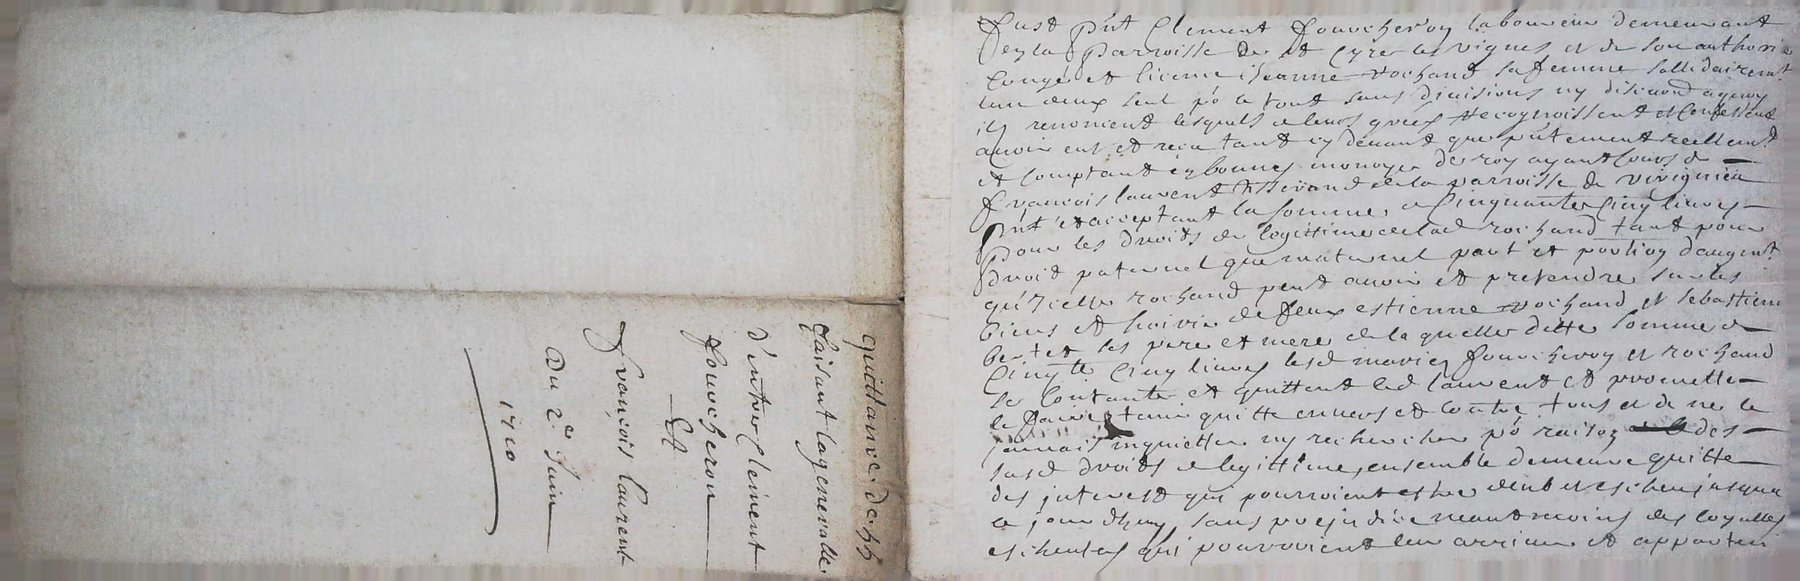 quittance de 55
faisant la generalle
d'entre Clement
fourcheron
Et
françois laurent
Du 2e Juin
1710
fust pnt Clement fourcheron laboureur demeurant
en la parroisse de st Cyre les vignes et de son authorité
Congé et licence Jeanne rochand sa femme sollidairemt
lun deux seul po le tout sans divisions ny discution aquoy
ils renoncent lesquels de leurs grees recognoissent et Confessent
avoir eut et reçu tant cy devant que pntement reellemt
et Comptant en bonnes monoyes de roy ayant Cours de
françois laurent de la parroisse de
pnt et acceptant la somme de Cinquante Cinq livres
pour les droits de legittime de lad rochand tant pour
droit paternel que maternel part et portion daugmt
qu'icelle rochand peut avoir et pretendre sur les
biens et hoirie de feux estienne rochand et sebastienne
ses pere et mere de laquelle ditte somme de
Cinqte Cinq livres lesd mariez fourcheron et rochand
se Contante et quittent led laurent et promette
le faire tenir quitte envers et Contre tous et de ne le
jamais inquietter ny rechercher po raison des
susd droits de legittime, ensemble demeure quitte
des interest qui pourroient estre deub et escheus jusqua
ce jourdhuy sans prejudice neantmoins des loyalles
escheutes qui pourroient leur arriver et apparteni